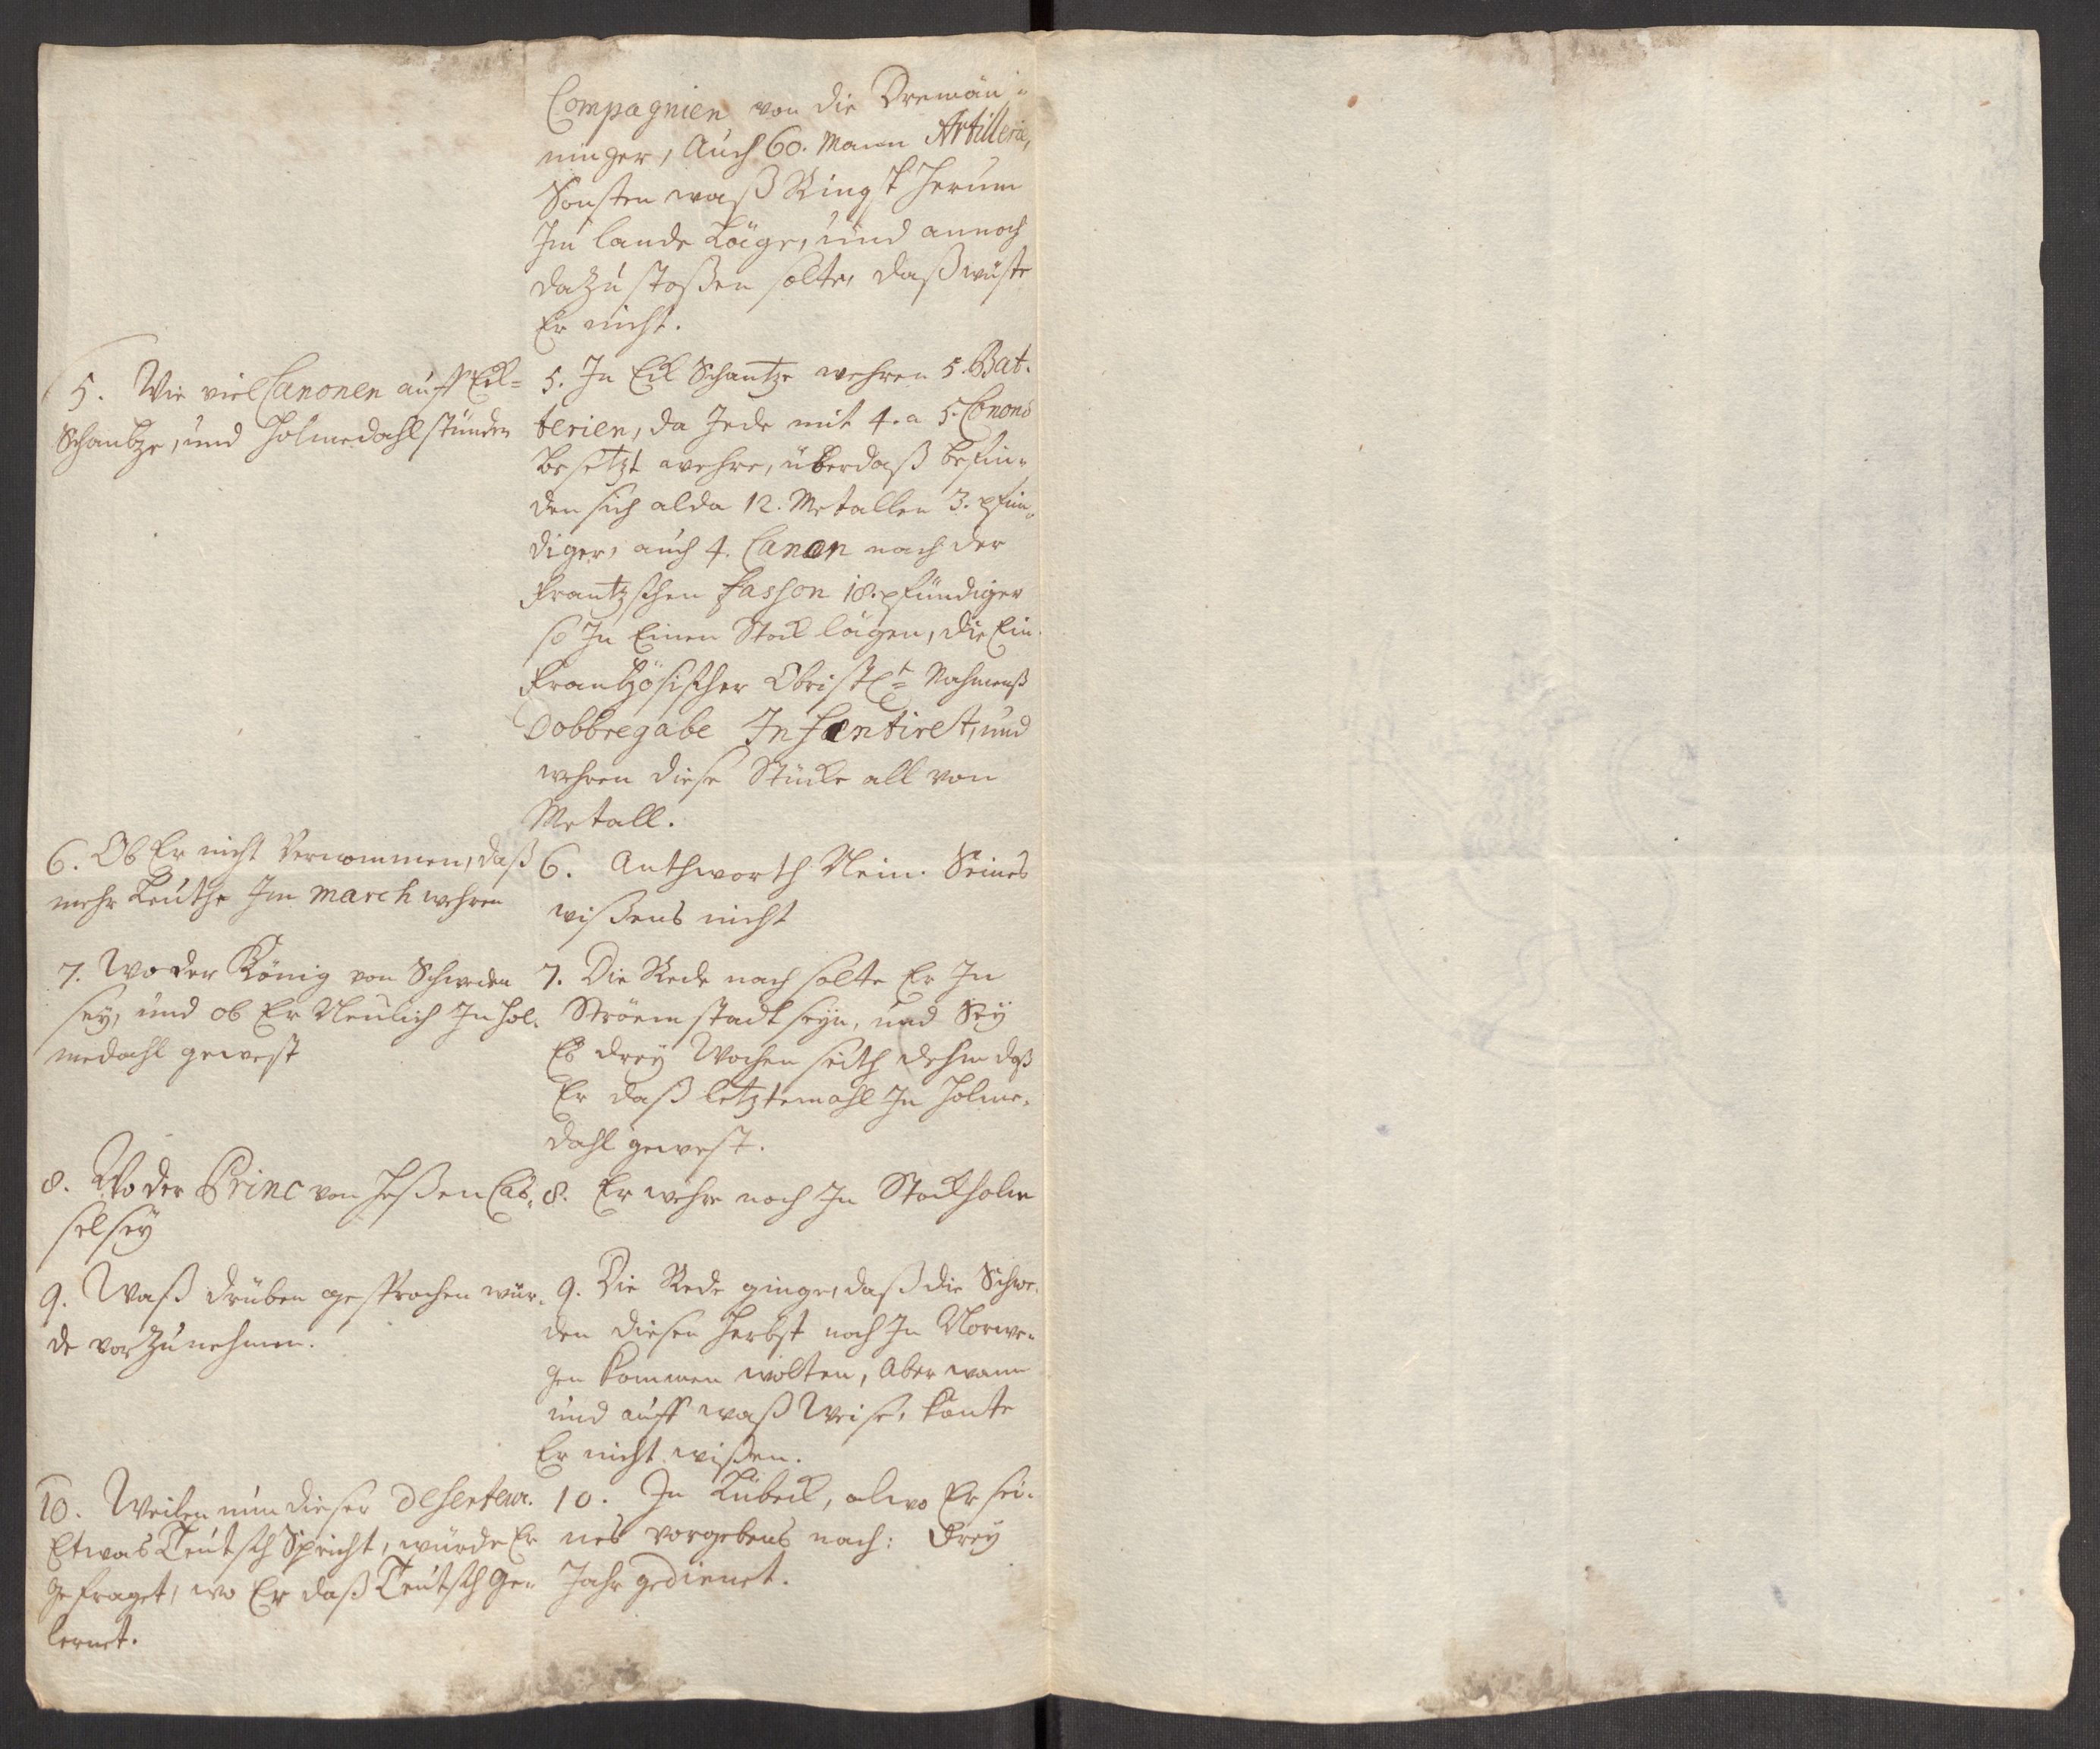 Compagnien von die Dremän-
ninger, Auch 60. Mann Artillerie,
Sonsten waß Ringst herum
Im lande Läge, und annoch
dazu stoßen solte, daß wüste
Er nicht.
5. Wie viel Canonen auff Eck-
Schantze, und Holmedahl stünden
5. In Eck Schantze wehren 5. Bat-
terien, da Jede mit 4. a 5. Conons
besetzt wehre, überdaß befin-
den sich alda 12. Metallen 3. pfün-
diger, auch 4. Canon nach der
Frantzschen Fasson 18. pfündiger
so In Einen Stock lägen, die Ein
Frantzösischer Obrist Lt Nahmenß
Dobbregabe Infantiret, und
wehren diese Stücke all von
Metall.
6. Ob Er nicht Vernommen, daß
mehr Leuthe Im march wehren
6. Anthworth Nein. Seines
wißens nicht
7. Wo der König von Schweden
sey, und ob Er Neulich In Hol-
medahl gewest
7. Die Rede nach solte Er In
Ströemstadt seyn, und Sey
Es drey Wochen seith dehm daß
Er daß letztemahl In Holme-
dahl gewest.
8. Wo der Princ von Heßen Cas-
sel sey
8. Er wehre noch In Stockholm
9. Waß drüben gesprochen wür-
de vorzunehmen.
9. Die Rede ginge, daß die Schwe-
den diesen Herbst noch In Norwe-
gen kommen wolten, Aber wann
und auff waß Weise, konte
Er nicht wißen.
10. Weilen nun dieser Deserteur.
Etwas Teutsch Spricht, würde Er
gefraget, wo Er daß Teutsch Ge-
lernet.
10. In Lübeck, alwo Er sei-
nes vorgebens nach: drey
Jahr gedienet.